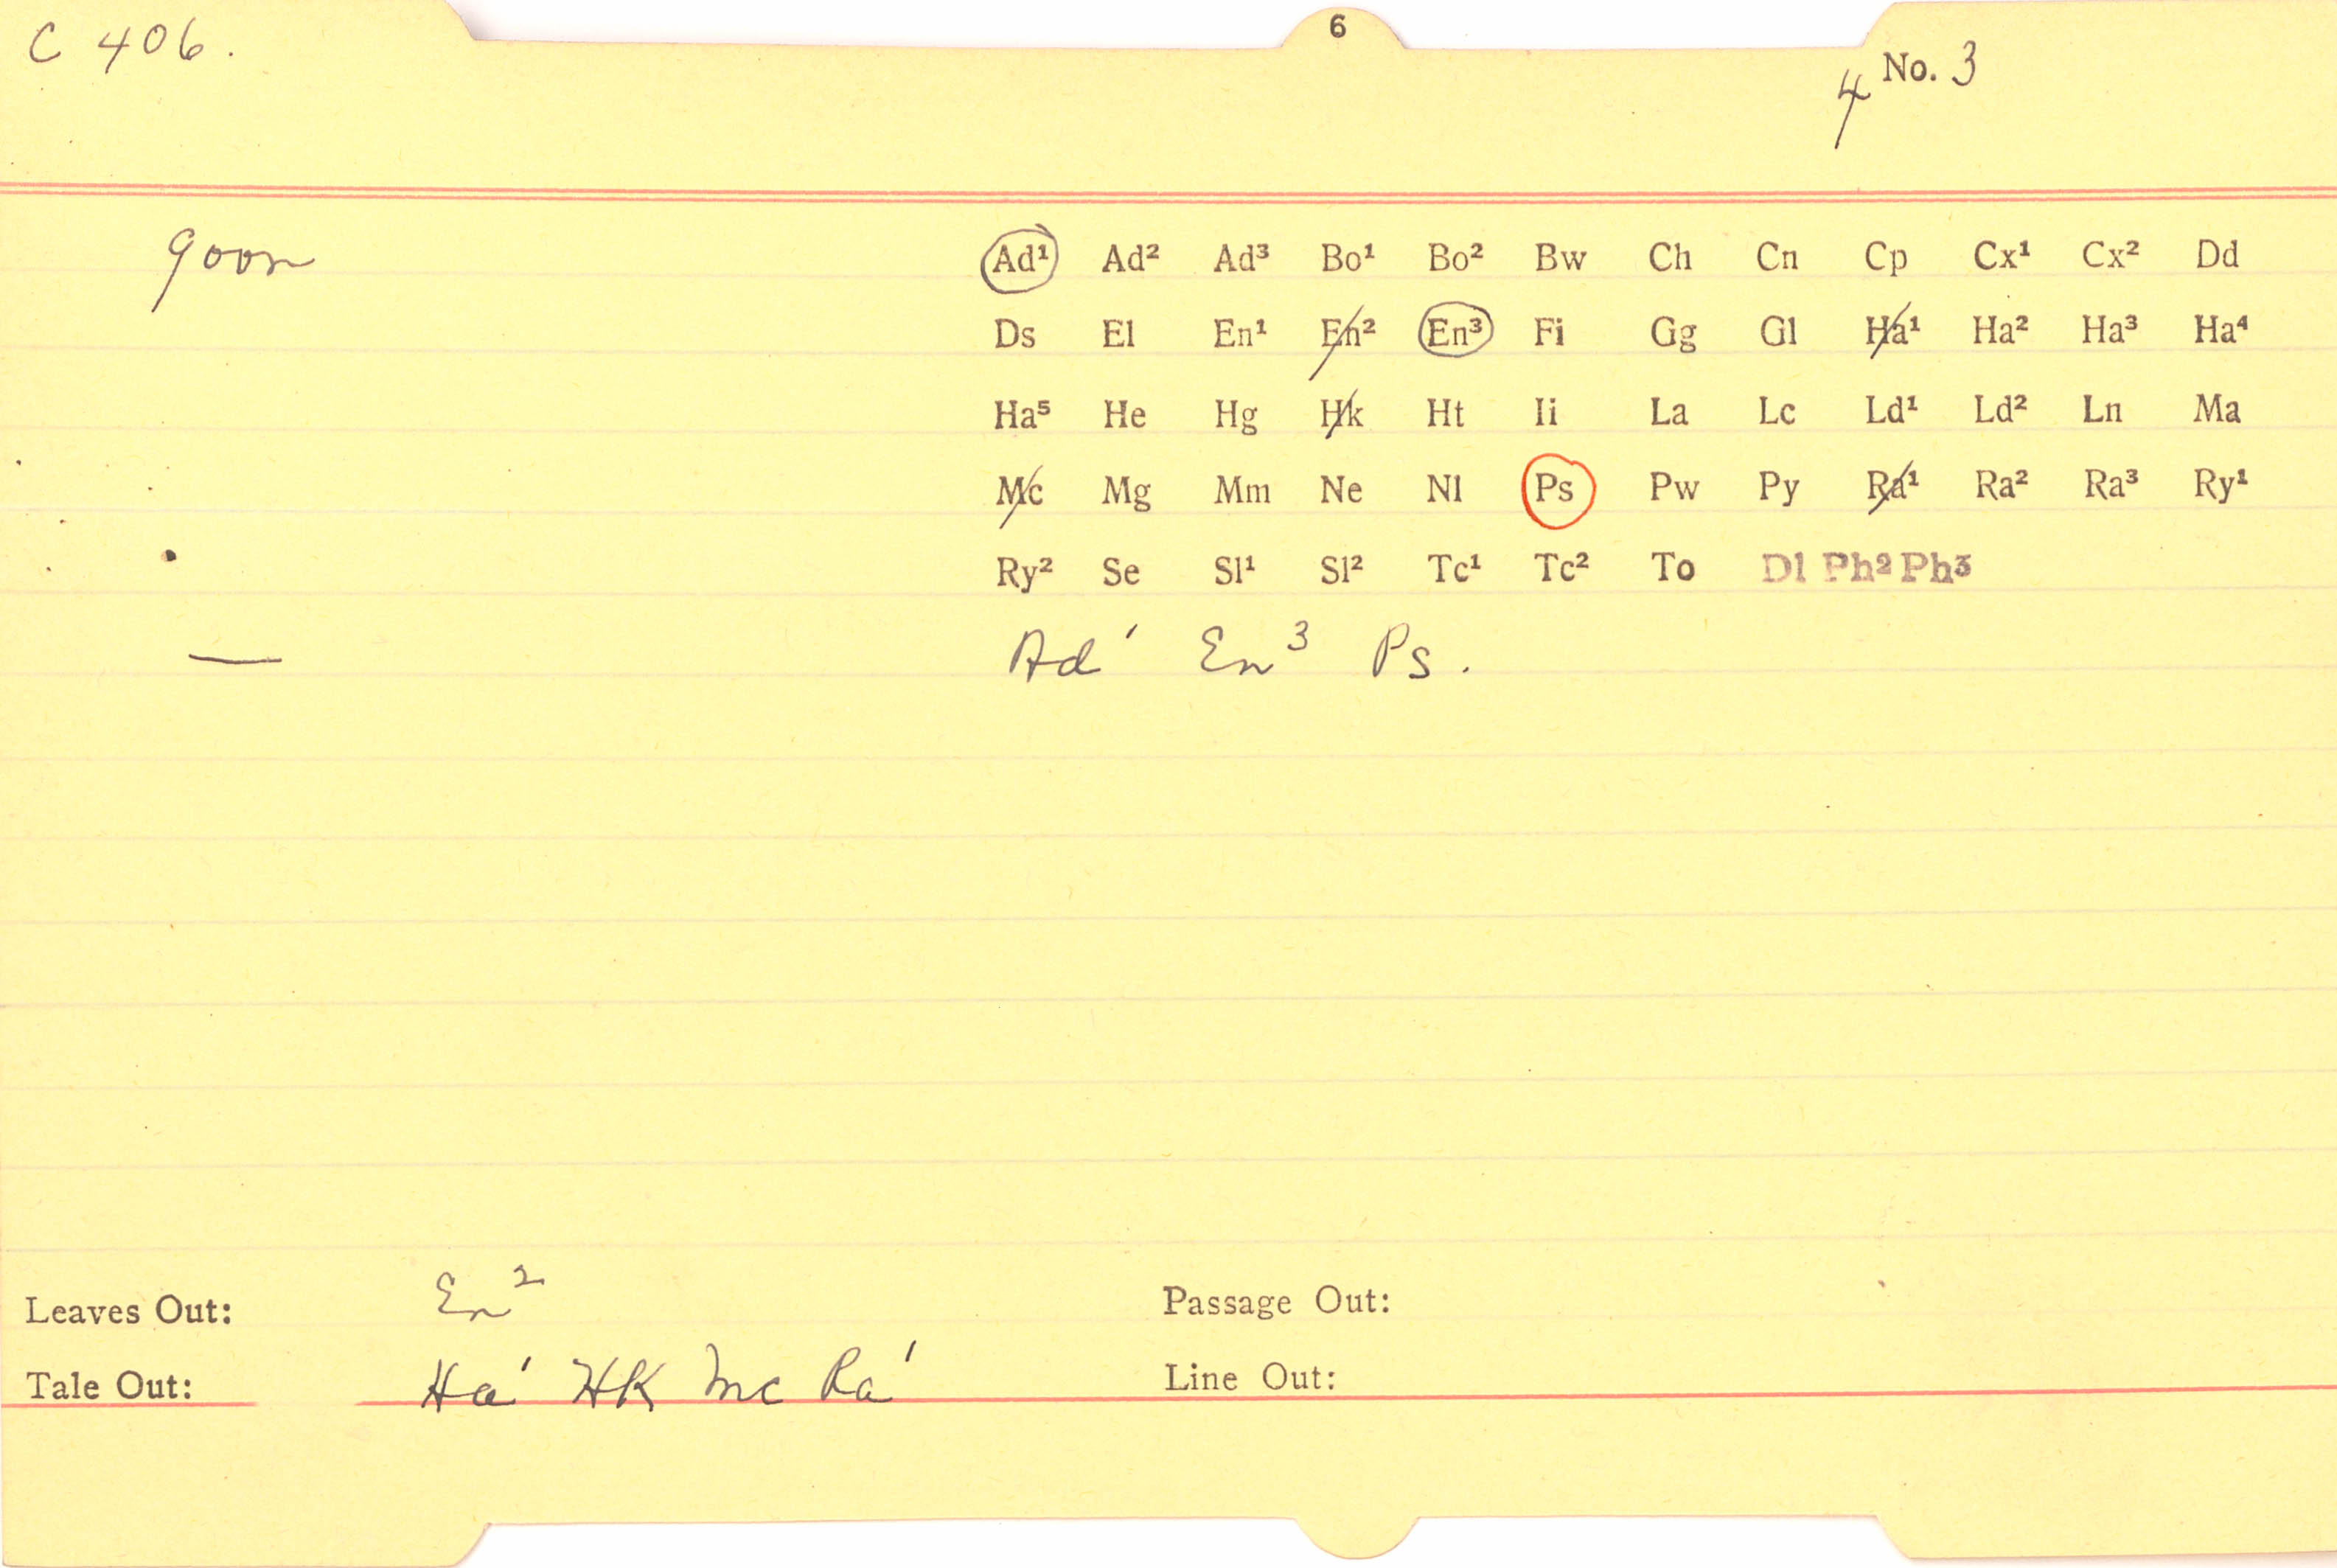 C 406.
6
4 No. 3
goon
Ad¹ Ad² Ad³ Bo¹ Bo² Bw Ch Cn Cp Cx¹ Cx² Dd
Ds El En¹ En² En³ Fi Gg Gl Ha¹ Ha² Ha³ Ha⁴
Ha⁵ He Hg Hk Ht Ii La Lc Ld¹ Ld² Ln Ma
Mc Mg Mm Ne Nl Ps Pw Py Ra¹ Ra² Ra³ Ry¹
Ry² Se Sl¹ Sl² Tc¹ Tc² To Dl Ph² Ph³
— Ad¹ En³ Ps.
Leaves Out: En² Passage Out:
Tale Out: Ha¹ HK Mc Ra¹ Line Out: